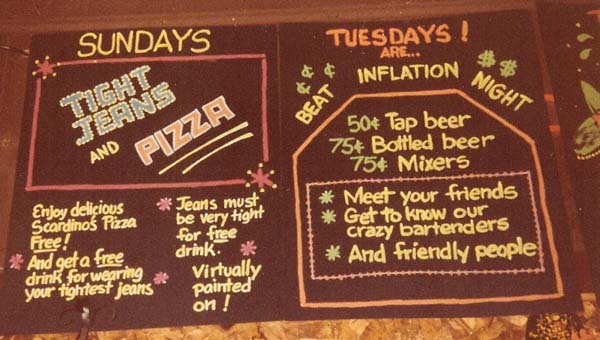 SUNDAYS
TIGHT
JEANS
AND
PIZZA
Enjoy delicious
Scardino's Pizza
Free!
* And get a free
drink for wearing
your tightest jeans
* Jeans must
be very tight
for free
drink. *
* Virtually
painted
on!
TUESDAYS!
ARE...
¢ ¢ ¢ ¢
BEAT INFLATION NIGHT
$ $ $
50¢ Tap beer
75¢ Bottled beer
75¢ Mixers
* Meet your friends
* Get to know our
crazy bartenders
* And friendly people